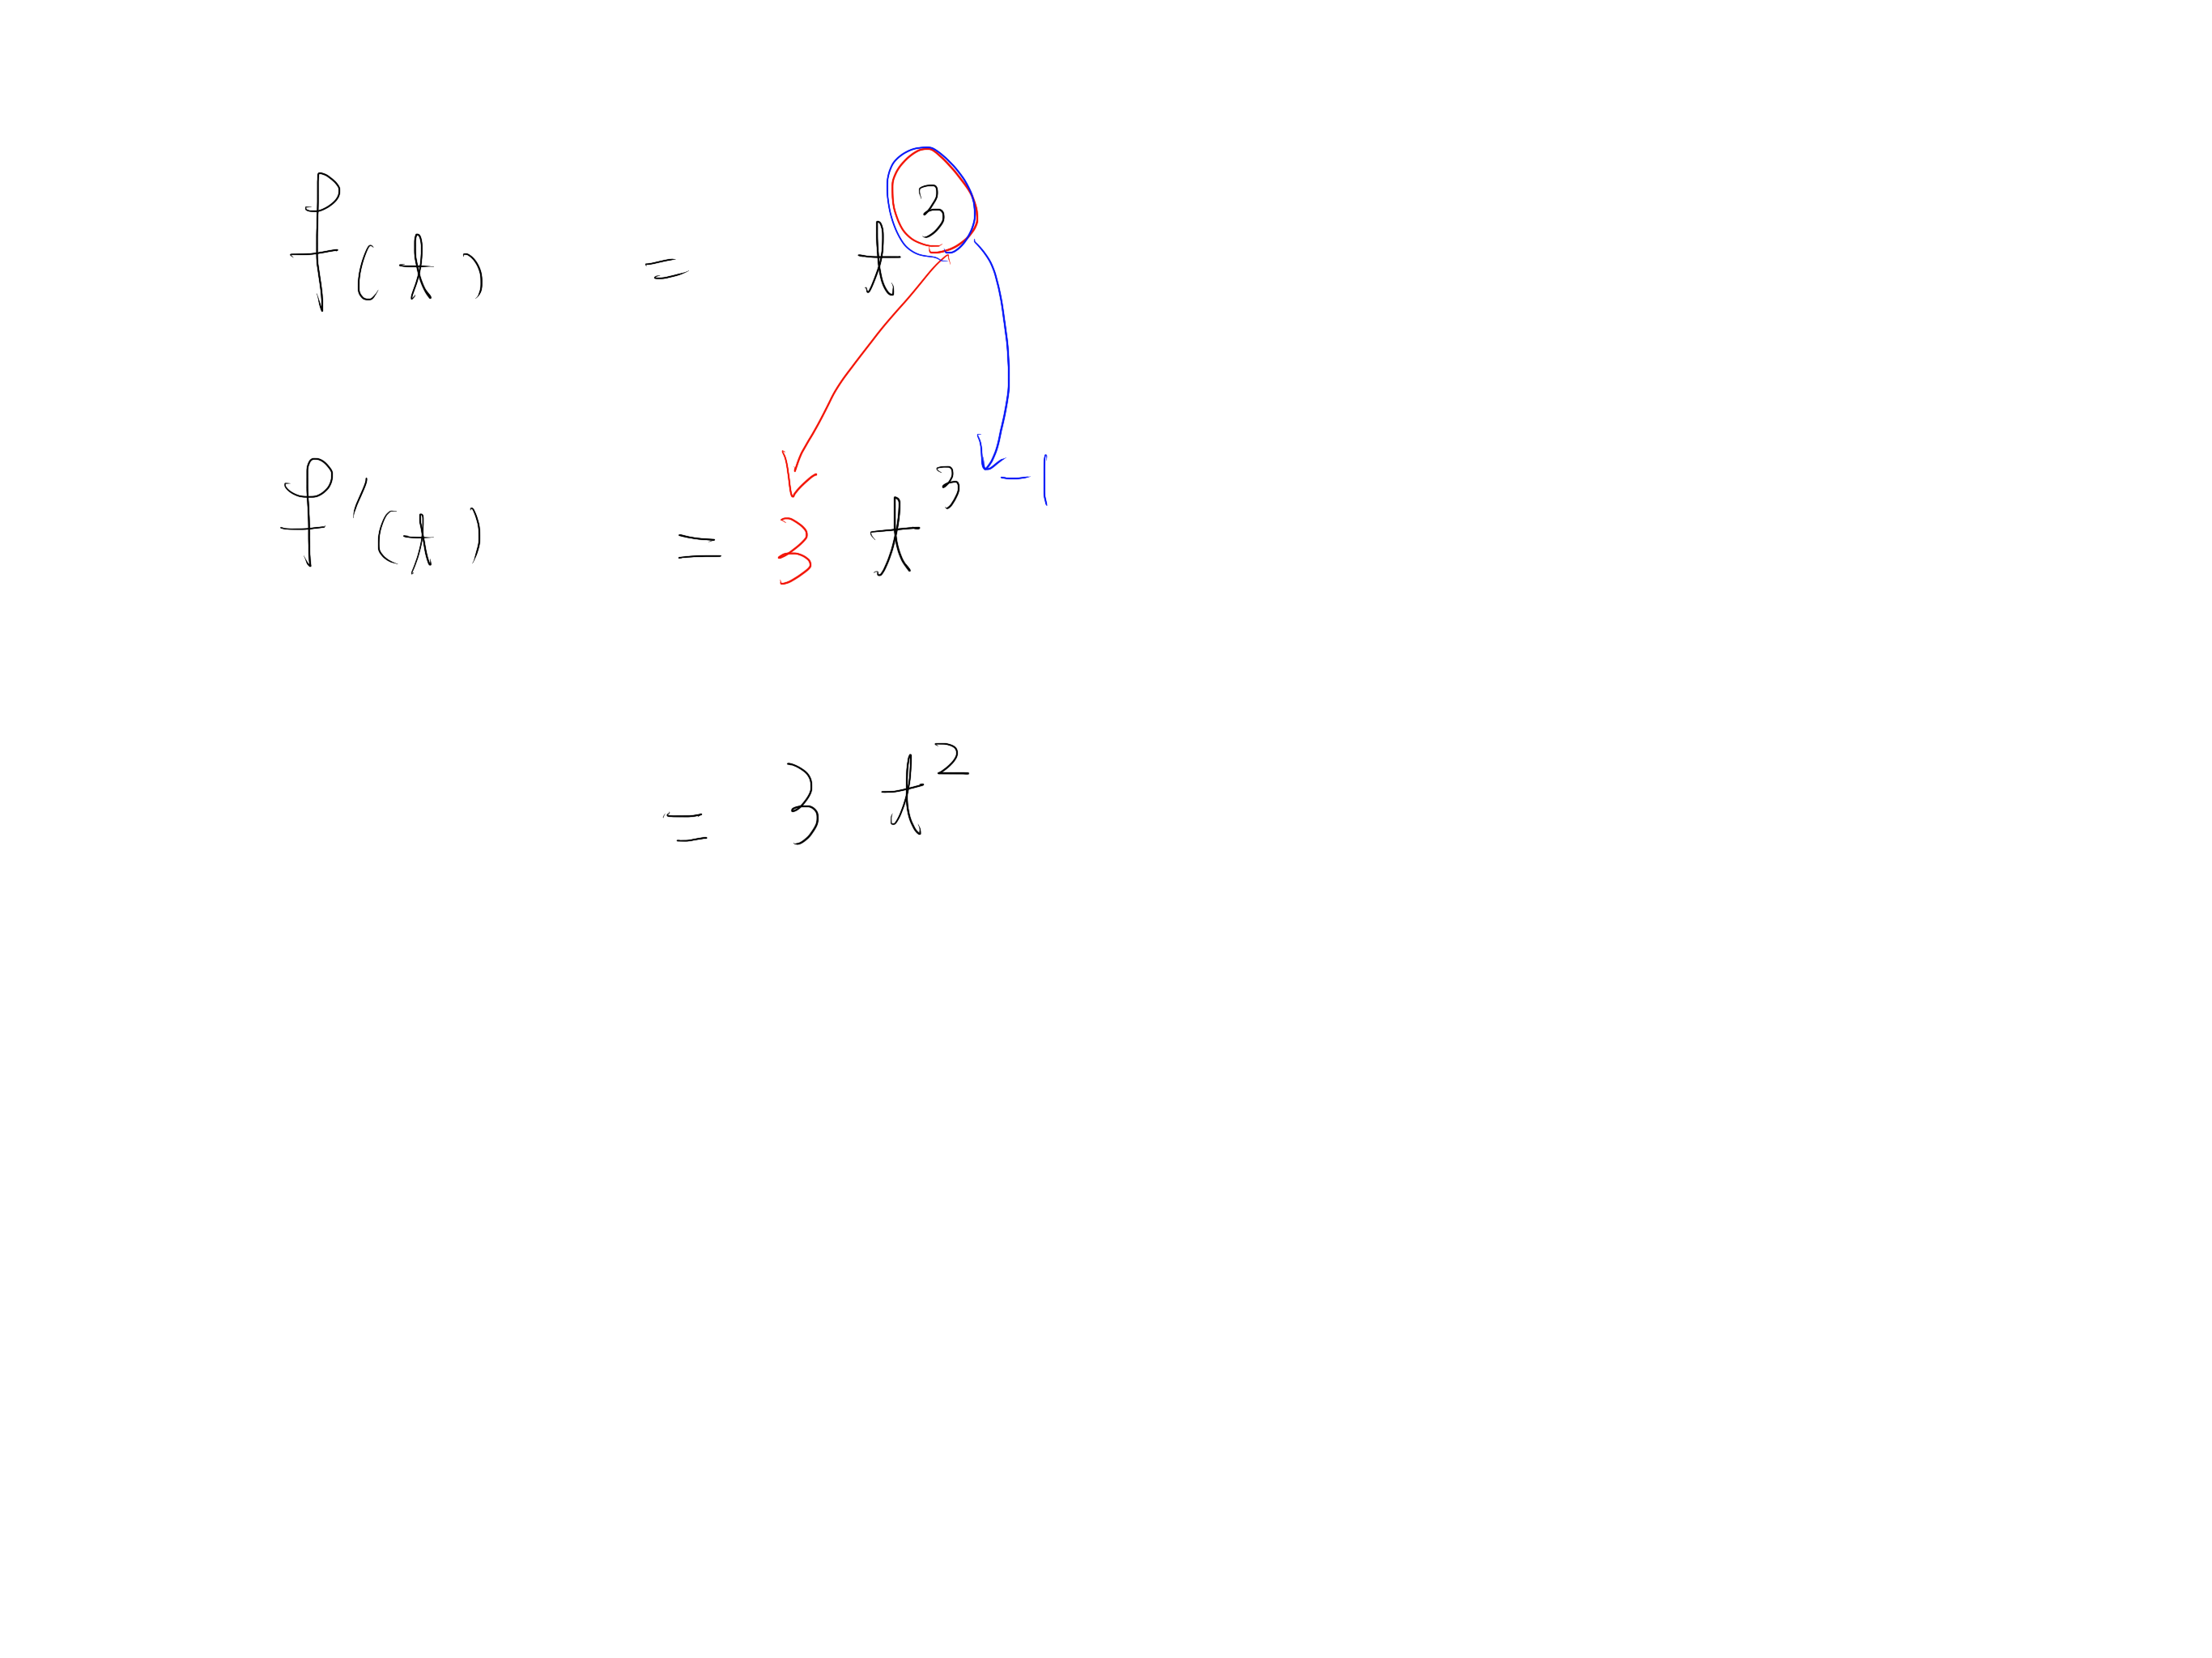 f(t) = t³
f'(t) = 3 t³⁻¹
= 3 t²